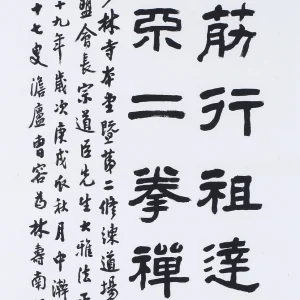 筋行祖達
二拳禪
林寺本堂暨第二修練道場
盟會長宗道臣先生大雅法正
十九年歲次庚戌秋月中澣
十七叟澹廬曹容為林壽南